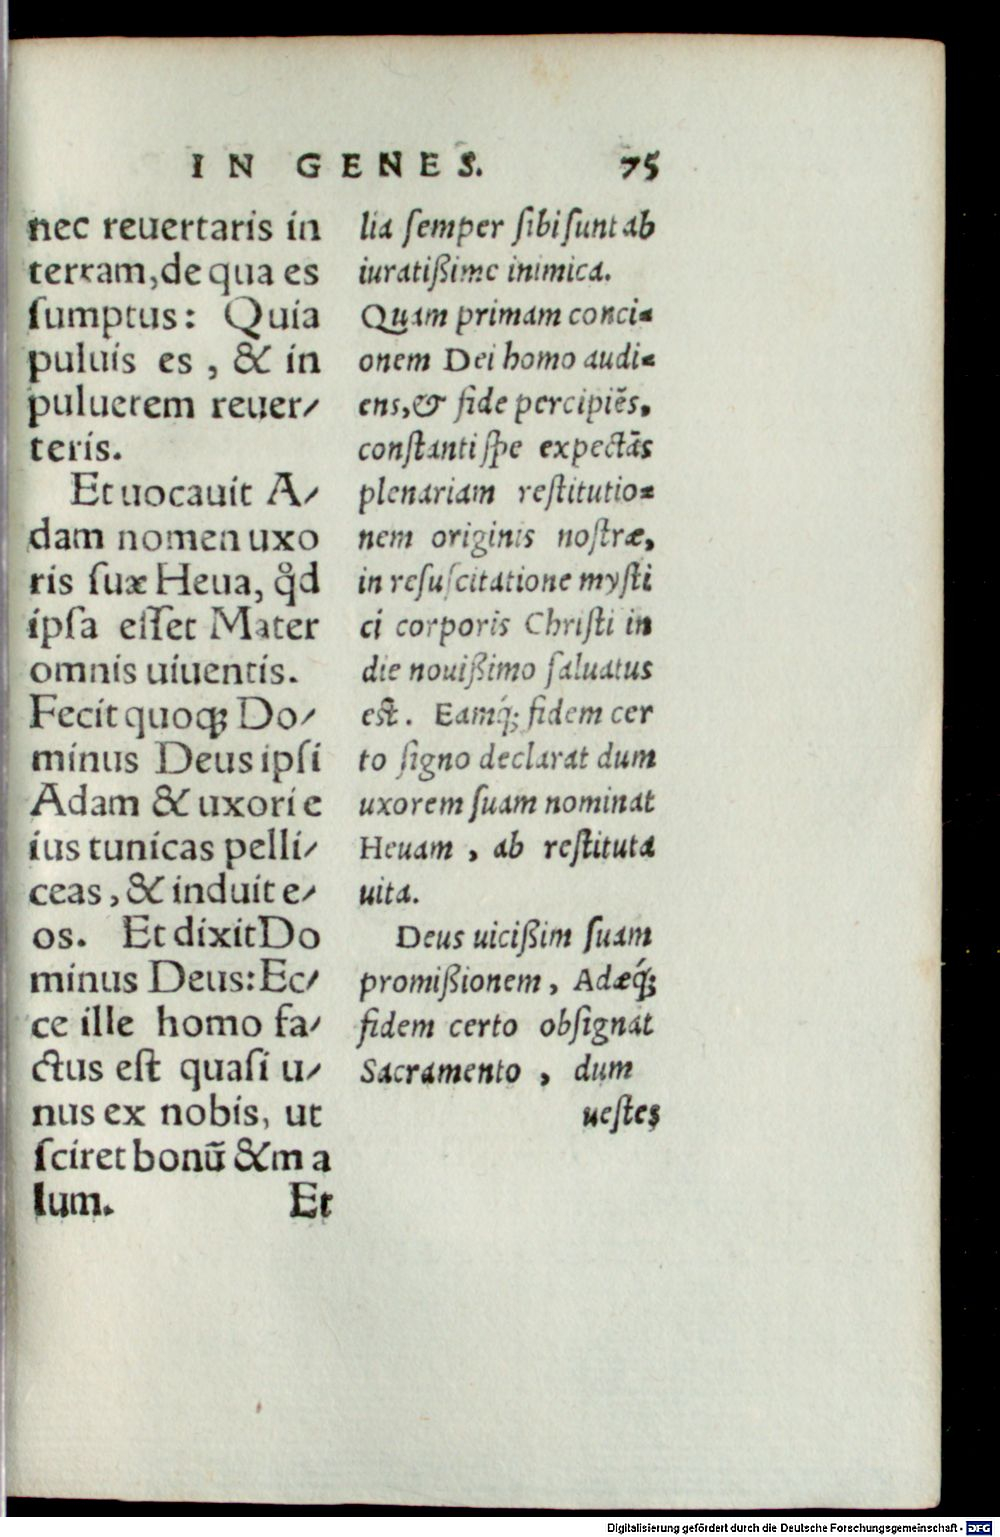 IN GENES. 75
nec reuertaris in
terram, de qua es
ſumptus: Quia
puluis es, & in
puluerem reuer⸗
teris.
Et uocauit A⸗
dam nomen uxo
ris ſuæ Heua, qd̉
ipſa eſſet Mater
omnis uiuentis.
Fecit quoqꝫ Do⸗
minus Deus ipſi
Adam & uxori e
ius tunicas pelli⸗
ceas, & induit e⸗
os. Et dixit Do
minus Deus: Ec⸗
ce ille homo fa⸗
ctus eſt quaſi u⸗
nus ex nobis, ut
ſciret bonũ & ma
lum. Et
lia ſemper ſibi ſunt ab
iuratißime inimica.
Quam primam conci⸗
onem Dei homo audi⸗
ens, & fide percipiẽs,
conſtanti ſpe expectãs
plenariam reſtitutio⸗
nem originis noſtræ,
in reſuſcitatione myſti
ci corporis Chriſti in
die nouißimo ſaluatus
eſt. Eamq́ꝫ fidem cer
to ſigno declarat dum
uxorem ſuam nominat
Heuam, ab reſtituta
uita.
Deus uicißim ſuam
promißionem, Adæq́ꝫ
fidem certo obſignat
Sacramento, dum
ueſtes
Digitalisierung gefördert durch die Deutsche Forschungsgemeinschaft - DFG